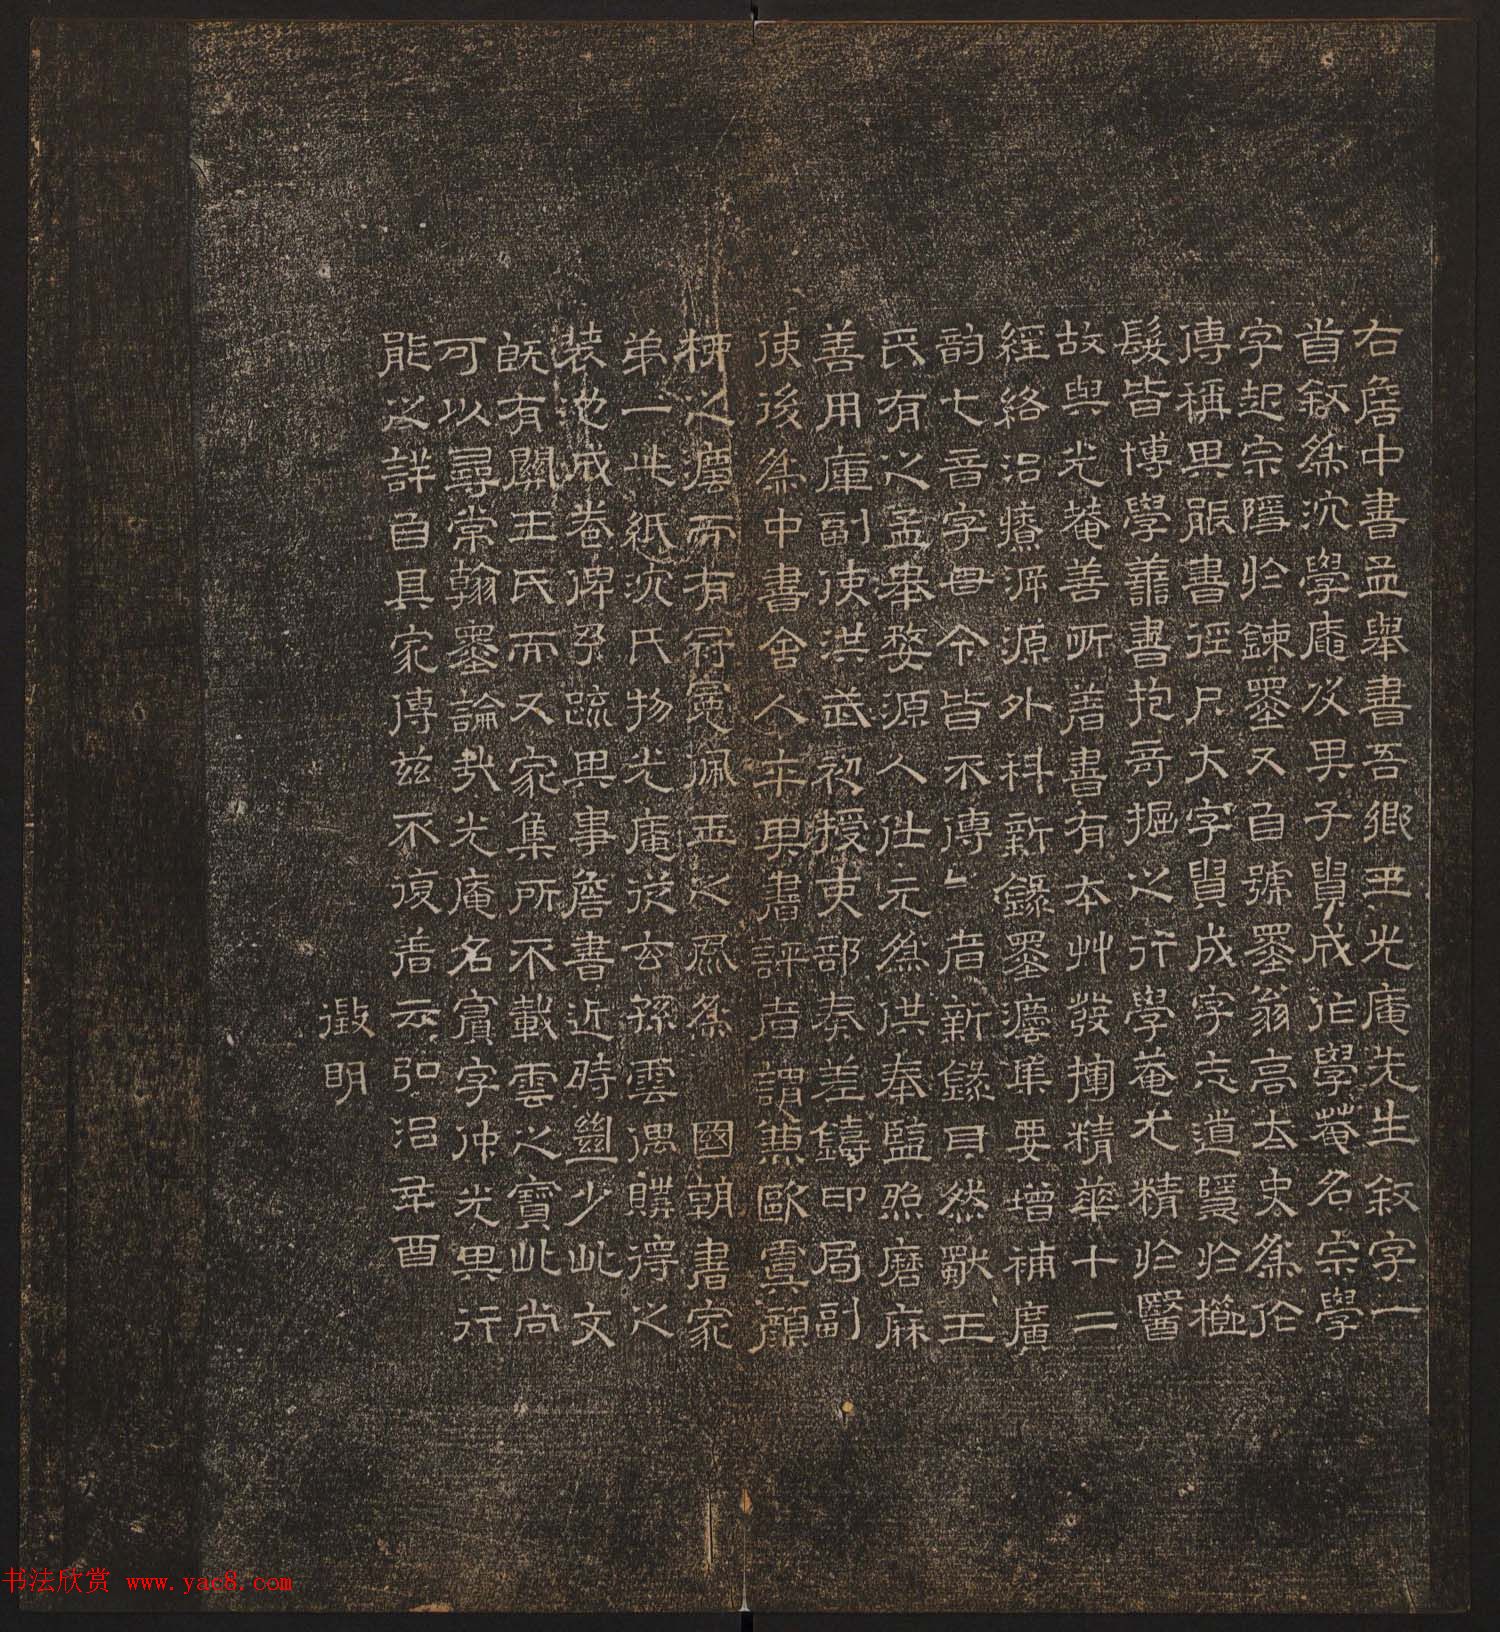 右詹中書孟舉書吾鄉王光庵先生敘字一
首敘為沈學庵及男子貫成作學菴名宗學
字起宗隱於鍊墨又自號墨翁高太史為作
傳稱其服書徑尺大字貫成字志道隱於櫃
髮皆博學善書抱奇掘之行學菴尤精於醫
故與光菴善所著書有本艸發揮精華十二
經絡治療源源外科新錄墨癚單要增補廣
韵七音字母今皆不傳傳者新錄耳然獻王
氏有之孟舉婺源人仕元為供奉監照磨麻
善用庫副使洪武初授吏部奏差鑄印局副
使後為中書舍人卒其書評者謂兼歐虞顏
柳之體而有冠冕佩玉之風為 國朝書家
弟一此紙沈氏物光庵從玄孫雲偶購得之
裝池成卷俾予疏其事詹書近時甚少此文
既有關王氏而又家集所不載雲之寶此尚
可以尋常翰墨論哉光庵名賓字仲光其行
能之詳自具家傳茲不復著云弘治辛酉
徵明
书法欣赏 www.yac8.com